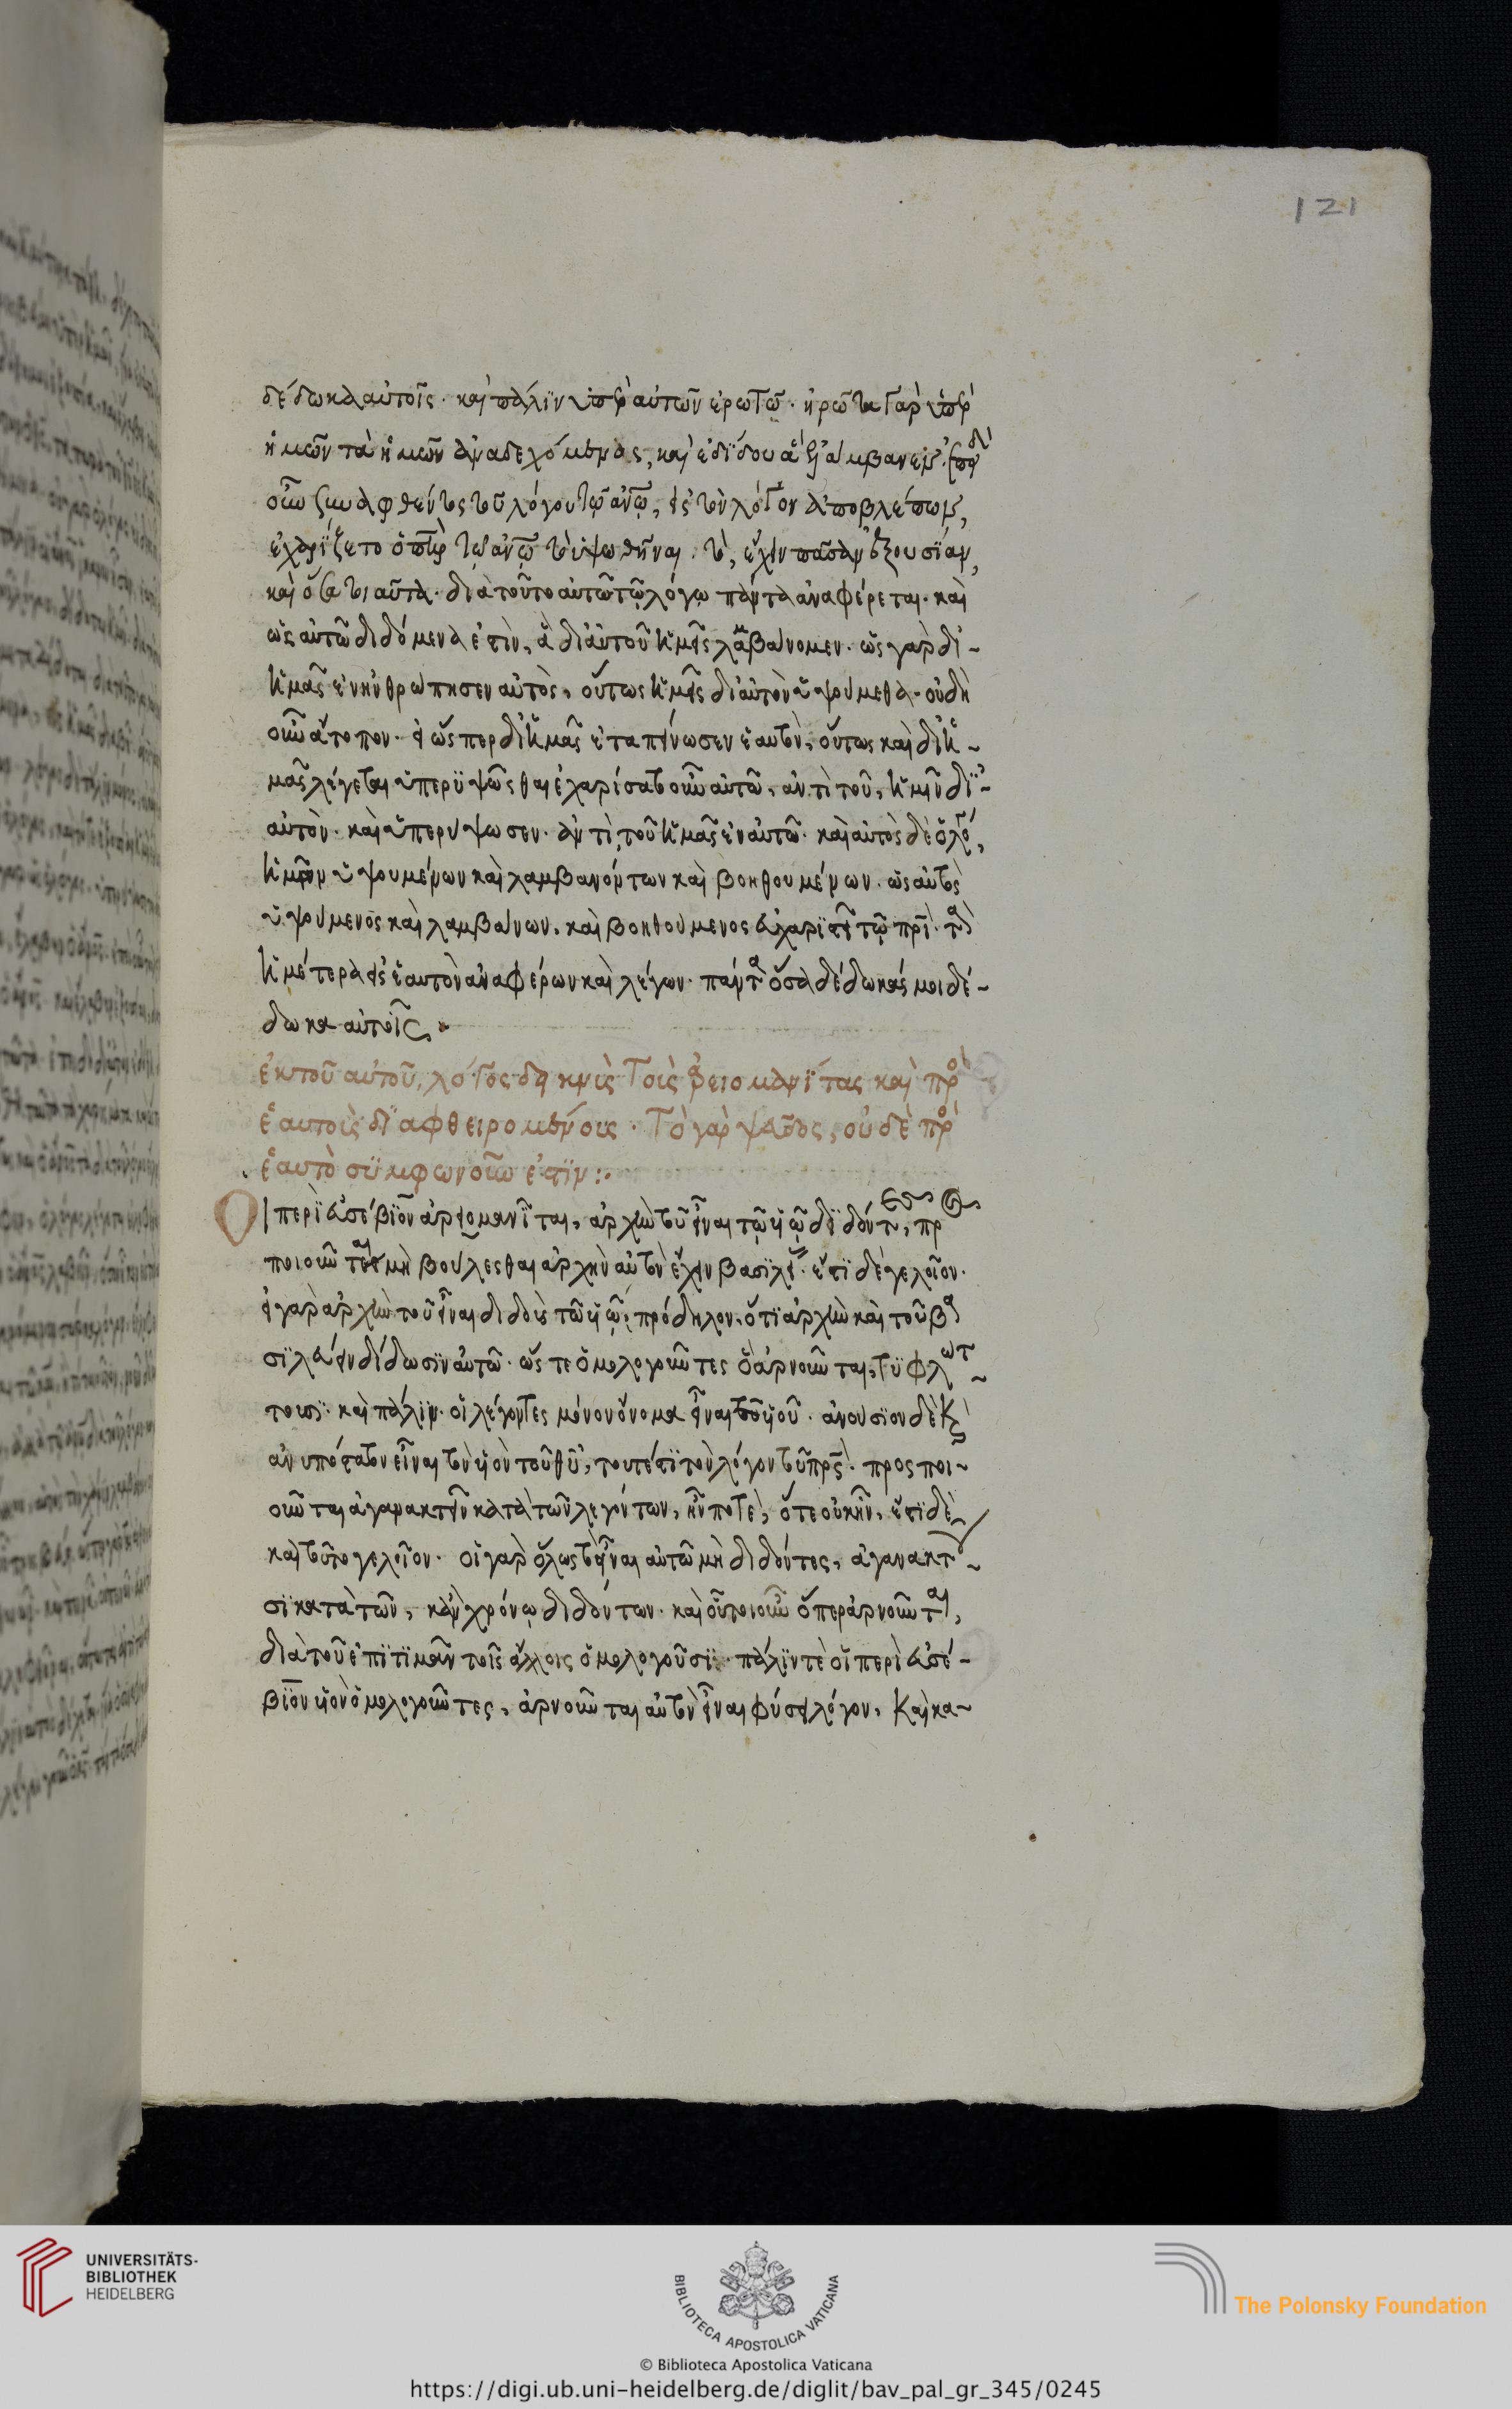 121
δέδωκα αὐτοῖς· καὶ πάλιν ὑπὲρ αὐτῶν ἐρωτῶ· ἠρώτα γὰρ ὑπὲρ
ἡμῶν τὰ ἡμῶν ἀναδεχόμενος, καὶ ἐδίδου ἃ ἐλάμβανεν· ἐπειδὴ
οὖν συναφθέντος τοῦ λόγου τῷ ἀνῷ, εἰς τὸν λόγον ἀποβλέπων,
ἐχαρίζετο ὁ πὴρ τῷ ἀνῷ τὸ ὑψωθῆναι· τὸ, ἔχειν πᾶσαν ἐξουσίαν,
καὶ ὅσα τοιαῦτα· διὰ τοῦτο αὐτῶ τῶ λόγω πάντα ἀναφέρεται· καὶ
ὡς αὐτῶ διδόμενά ἐστιν, ἃ δι αὐτοῦ ἡμεῖς λαμβάνομεν· ὡς γὰρ δι
ἡμᾶς ἐνηνθρώπησεν αὐτὸς, οὕτως ἡμεῖς δι αὐτὸν ὑψούμεθα· οὐδὲν
οὖν ἄτοπον· εἰ ὥσπερ δι ἡμᾶς ἐταπείνωσεν ἑαυτὸν, οὕτως καὶ δι ἡ
μᾶς λέγεται ὑπερϋψῶσθαι ἐχαρίσατο οὖν αὐτῶ, ἀντὶ τοῦ, ἡμῖν δι
αὐτὸν· καὶ ὑπερύψωσεν· ἀντὶ τοῦ ἡμᾶς ἐν αὐτῶ· καὶ αὐτὸς δὲ ὁ λόγος,
ἡμῶν ὑψουμένων καὶ λαμβανόντων καὶ βοηθουμένων· ὡς αὐτὸς
ὑψούμενος καὶ λαμβάνων, καὶ βοηθούμενος εὐχαριστεῖ τῶ πρὶ· τὰ
ἡμέτερα εἰς ἑαυτὸν ἀναφέρων καὶ λέγων· πάντα ὅσα δέδωκάς μοι δέ
δωκα αὐτοῖς
ἐκ τοῦ αὐτοῦ, λόγος δεικνὺς τοὺς ἀρειομανίτας καὶ πρὸς
ἑαυτοὺς διαφθειρομένους· Τὸ γὰρ ψεῦδος, οὐδὲ πρὸς
ἑαυτὸ σύμφωνον ἐστϊν:·
Οἱ περὶ εὐσέβϊον ἀρειομανῖται, ἀρχὴν τοῦ εἶναι τῶ ὑιῶ διδόντες, προσ
ποιοῦνται μὴ βούλεσθαι ἀρχὴν αὐτὸν ἔχειν βασιλείας· ἔστϊ δὲ γελοῖον·
ὁ γὰρ ἀρχὴν τοῦ εἶναι διδοὺς τῶ ὑιῶ, πρόδηλον, ὅτι ἀρχὴν καὶ τοῦ βα
σιλεύειν δίδωσϊν αὐτῶ· ὥστε ὁμολογοῦντες ὃ ἀρνοῦνται, τυφλώτ
τουσϊ· καὶ πάλιν· οἱ λέγοντες μόνον ὄνομα εἶναι τοῦ ὑιοῦ· ἀνούσϊον δὲ κ
ἀνυπόστατον εἶναι τὸν ὑιὸν τοῦ θῦ, τουτέστϊ τὸν λόγον τοῦ πρς· προσποι
οῦνται ἀγανακτεῖν κατὰ τῶν λεγόντων, ἦν ποτὲ, ὅτε οὐκ ἦν, ἔστϊ δὲ
καὶ τοῦτο γελοῖον· οἱ γὰρ ὅλως τὸ εἶναι αὐτῶ μὴ διδόντες, ἀγανακτοῦ
σϊ κατὰ τῶν, κἂν χρόνῳ διδόντων· καὶ οὗτοι οὖν ὅπερ ἀρνοῦνται,
διὰ τοῦ ἐπιτιμᾶν τοῖς ἄλλοις ὁμολογοῦσϊ· πάλϊν τὲ οἱ περὶ εὐσέ
βϊον ὑιὸν ὁμολογοῦντες, ἀρνοῦνται αὐτὸν εἶναι φύσει λόγον, καὶ κα
UNIVERSITÄTS-
BIBLIOTHEK
HEIDELBERG
BIBLIOTECA APOSTOLICA VATICANA
The Polonsky Foundation
© Biblioteca Apostolica Vaticana
https://digi.ub.uni-heidelberg.de/diglit/bav_pal_gr_345/0245